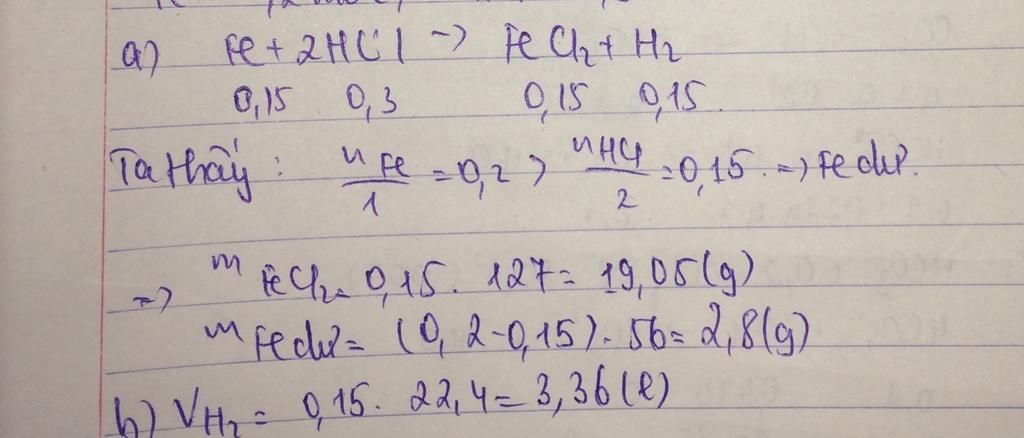 a) Fe + 2HCl -> FeCl2 + H2
0,15 0,3 0,15 0,15
Ta thấy: nFe/1 = 0,2 > nHCl/2 = 0,15. => Fe dư.
=> mFeCl2 = 0,15. 127 = 19,05 (g)
mFe dư = (0,2-0,15). 56 = 2,8 (g)
b) VH2 = 0,15. 22,4 = 3,36 (l)